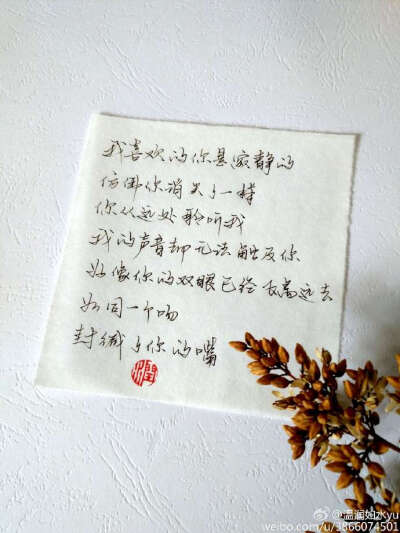 我喜欢的你是寂静的
仿佛你消失了一样
你从远处聆听我
我的声音却无法触及你
好像你的双眼已经飞离远去
如同一个吻
封缄了你的嘴
润
@温润如zkyu
weibo.com/u/3866074501